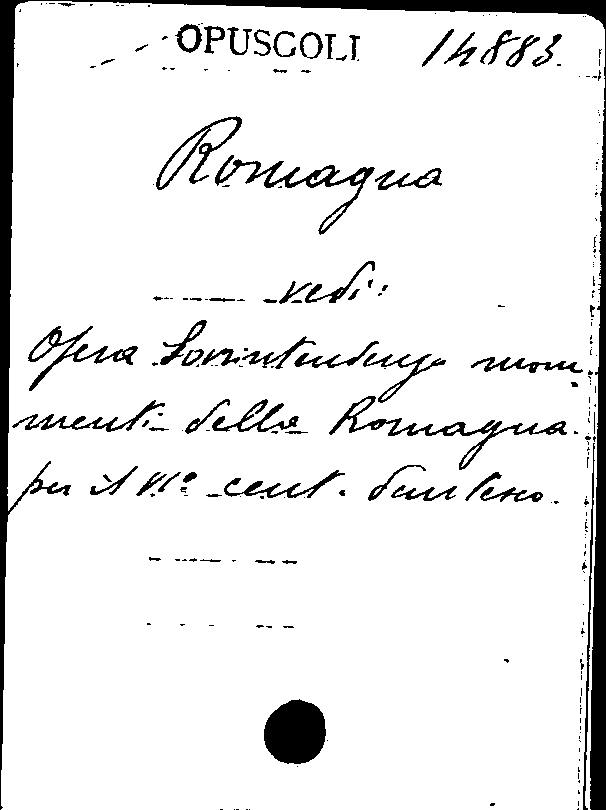 OPUSCOLI 14883.
Romagna
vedi:
Opera Sovrintendenza monu
menti della Romagna.
per il VI° cent. dantesco.